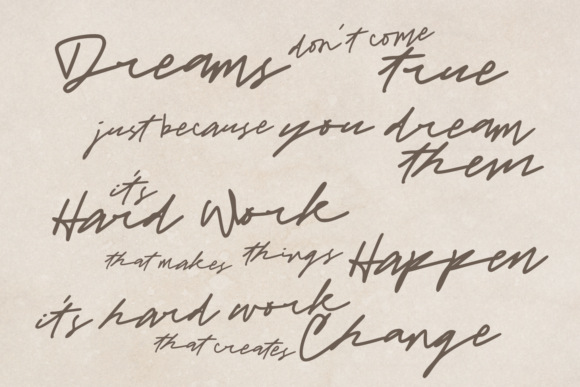 Dreams don't come true
just because you dream them
it's Hard Work
that makes things Happen
it's hard work
that creates Change